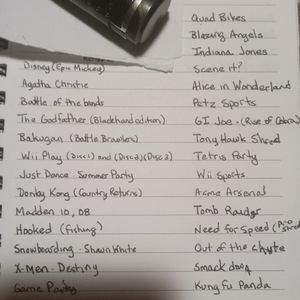 Quad Bikes
Blazing Angels
Indiana Jones
Disney (Epic Mickey)
Scene it?
Agatha Christie
Alice in Wonderland
Battle of the bands
Petz Sports
The Godfather (Blackhand edition)
GI Joe - (Rise of Cobra)
Bakugan (Battle Brawlers)
Tony Hawk Shred
Wii Play (Disc 1) and (Disc 2) (Disc 3)
Tetris Party
Just Dance - Summer Party
Wii Sports
Donkey Kong (Country Returns)
Acme Arsenal
Madden 10, 08
Tomb Raider
Hooked (Fishing)
Need for Speed
Snowboarding - Shawn White
Out of the chute
X-Men - Destiny
Smack
Game Party
Kung fu Panda